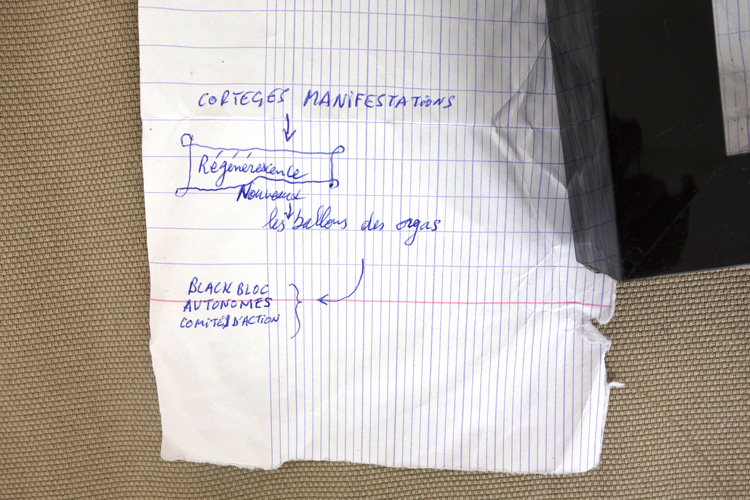 CORTEGES MANIFESTATIONS
Régénérescence
Nouveaux
les ballons des orgas
BLACK BLOC
AUTONOMES
COMITÉS D'ACTION